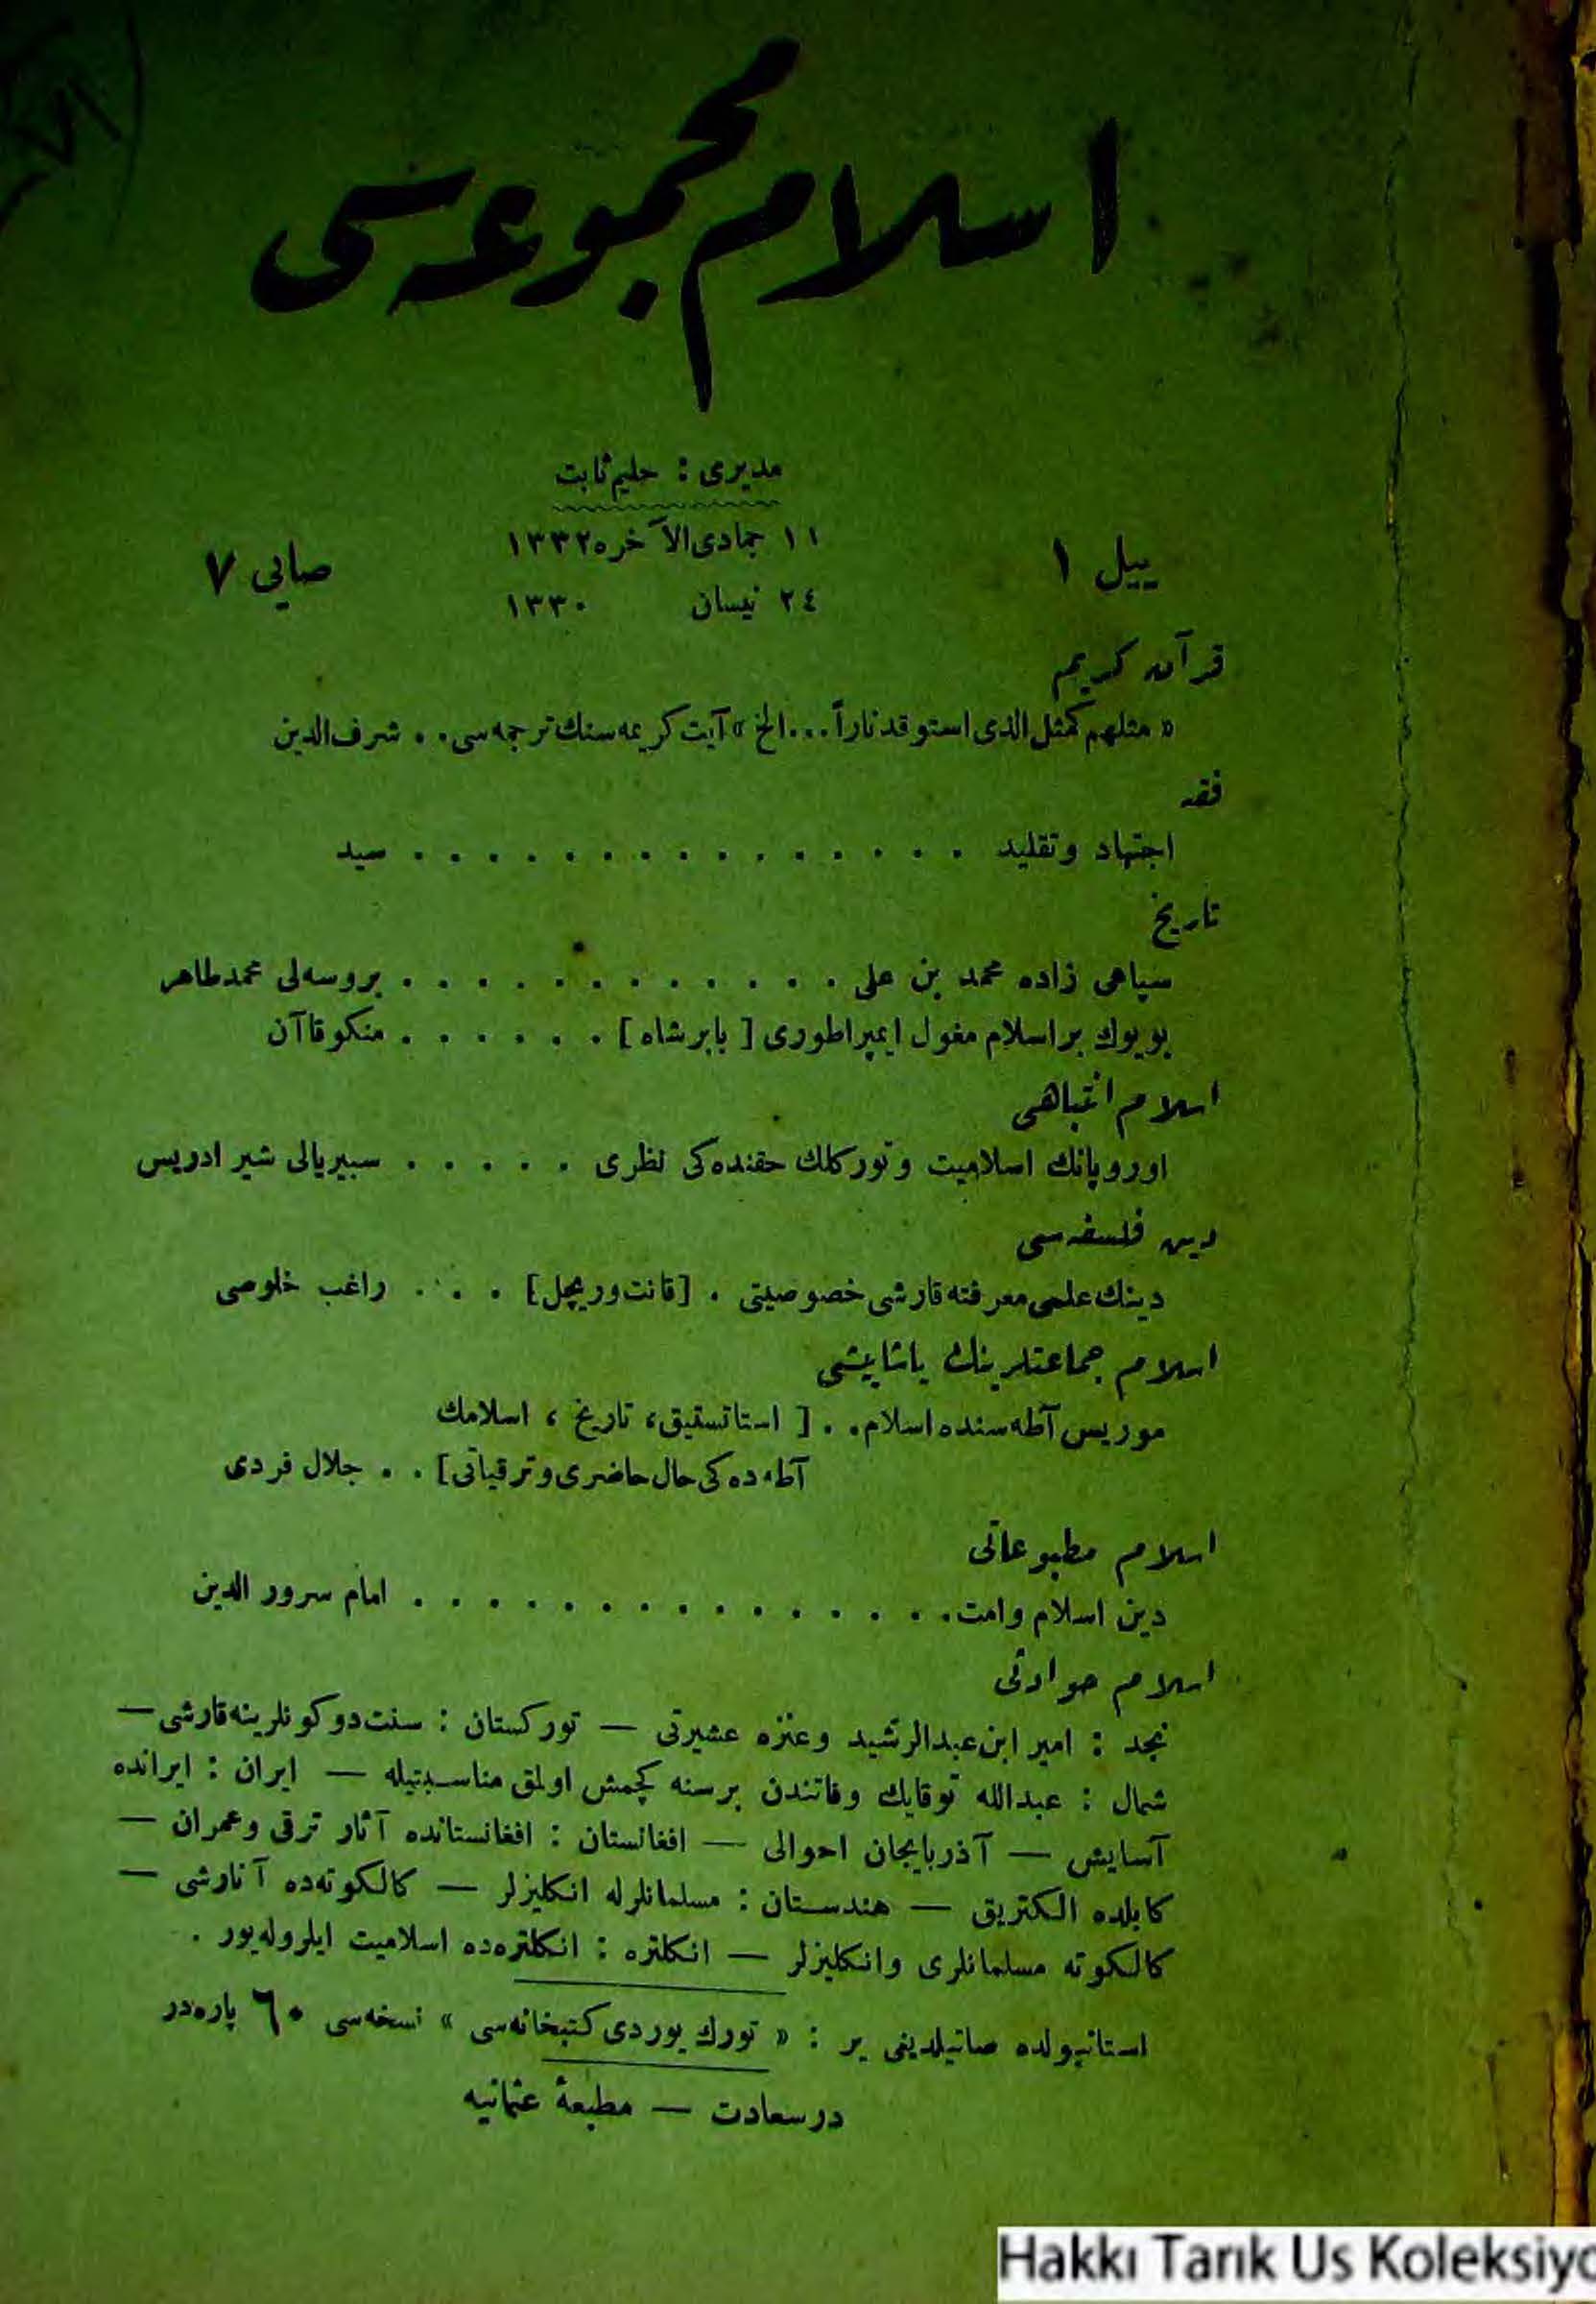 اسلام مجموعه‌سی
مدیری : حلیم ثابت
ییل ۱
۱۱ جمادی‌الآخره ۱۳۳۲
۲٤ نیسان ۱۳۳۰
صایی ۷
قرآن کریم
« مثلهم کمثل الذی استوقد ناراً... الخ » آیت کریمه‌سنك ترجمه‌سی . . شرف‌الدین
فقه
اجتهاد و تقلید . . . . . . . . . . . . . . . سید
تاریخ
سپاهی زاده محمد بن علی . . . . . . . . . . . . بروسه‌لی محمد طاهر
بویوك بر اسلام مغول ایمپراطوری [ بابرشاه ] . . . . . . منکو قاآن
اسلام انتباهی
اوروپانك اسلامیت و تورکلك حقنده‌کی نظری . . . . . سیبریالی شیر ادریس
دین فلسفه‌سی
دینك علمی معرفته قارشی خصوصیتی . [قانت وریچل] . . . . راغب خلوصی
اسلام جماعتلرینك یاشاییشی
موریس آطه‌سنده اسلام . . [ استاتستیق، تاریخ ، اسلامك
آطه‌ده‌کی حال حاضری و ترقیاتی] . . جلال فردی
اسلام مطبوعاتی
دین اسلام وامت . . . . . . . . . . . . . . . امام سرور الدین
اسلام حوادثی
نجد : امیر ابن عبدالرشید وعنزه عشیرتی — تورکستان : سنت دوکونلرینه قارشی —
شمال : عبدالله توقایك وفاتندن برسنه کچمش اولمق مناسبتیله — ایران : ایرانده
آسایش — آذربایجان احوالی — افغانستان : افغانستانده آثار ترقی وعمران —
کابلده الکتریق — هندستان : مسلمانلرله انکلیزلر — کالکوته‌ده آنارشی —
کالکوته مسلمانلری وانکلیزلر — انکلتره : انکلتره‌ده اسلامیت ایلروله‌یور .
استانبولده صاتیلدیغی یر : « تورك یوردی کتبخانه‌سی » نسخه‌سی ٦۰ پاره‌در
درسعادت — مطبعهٔ عثمانیه
Hakkı Tarık Us Koleksiyo